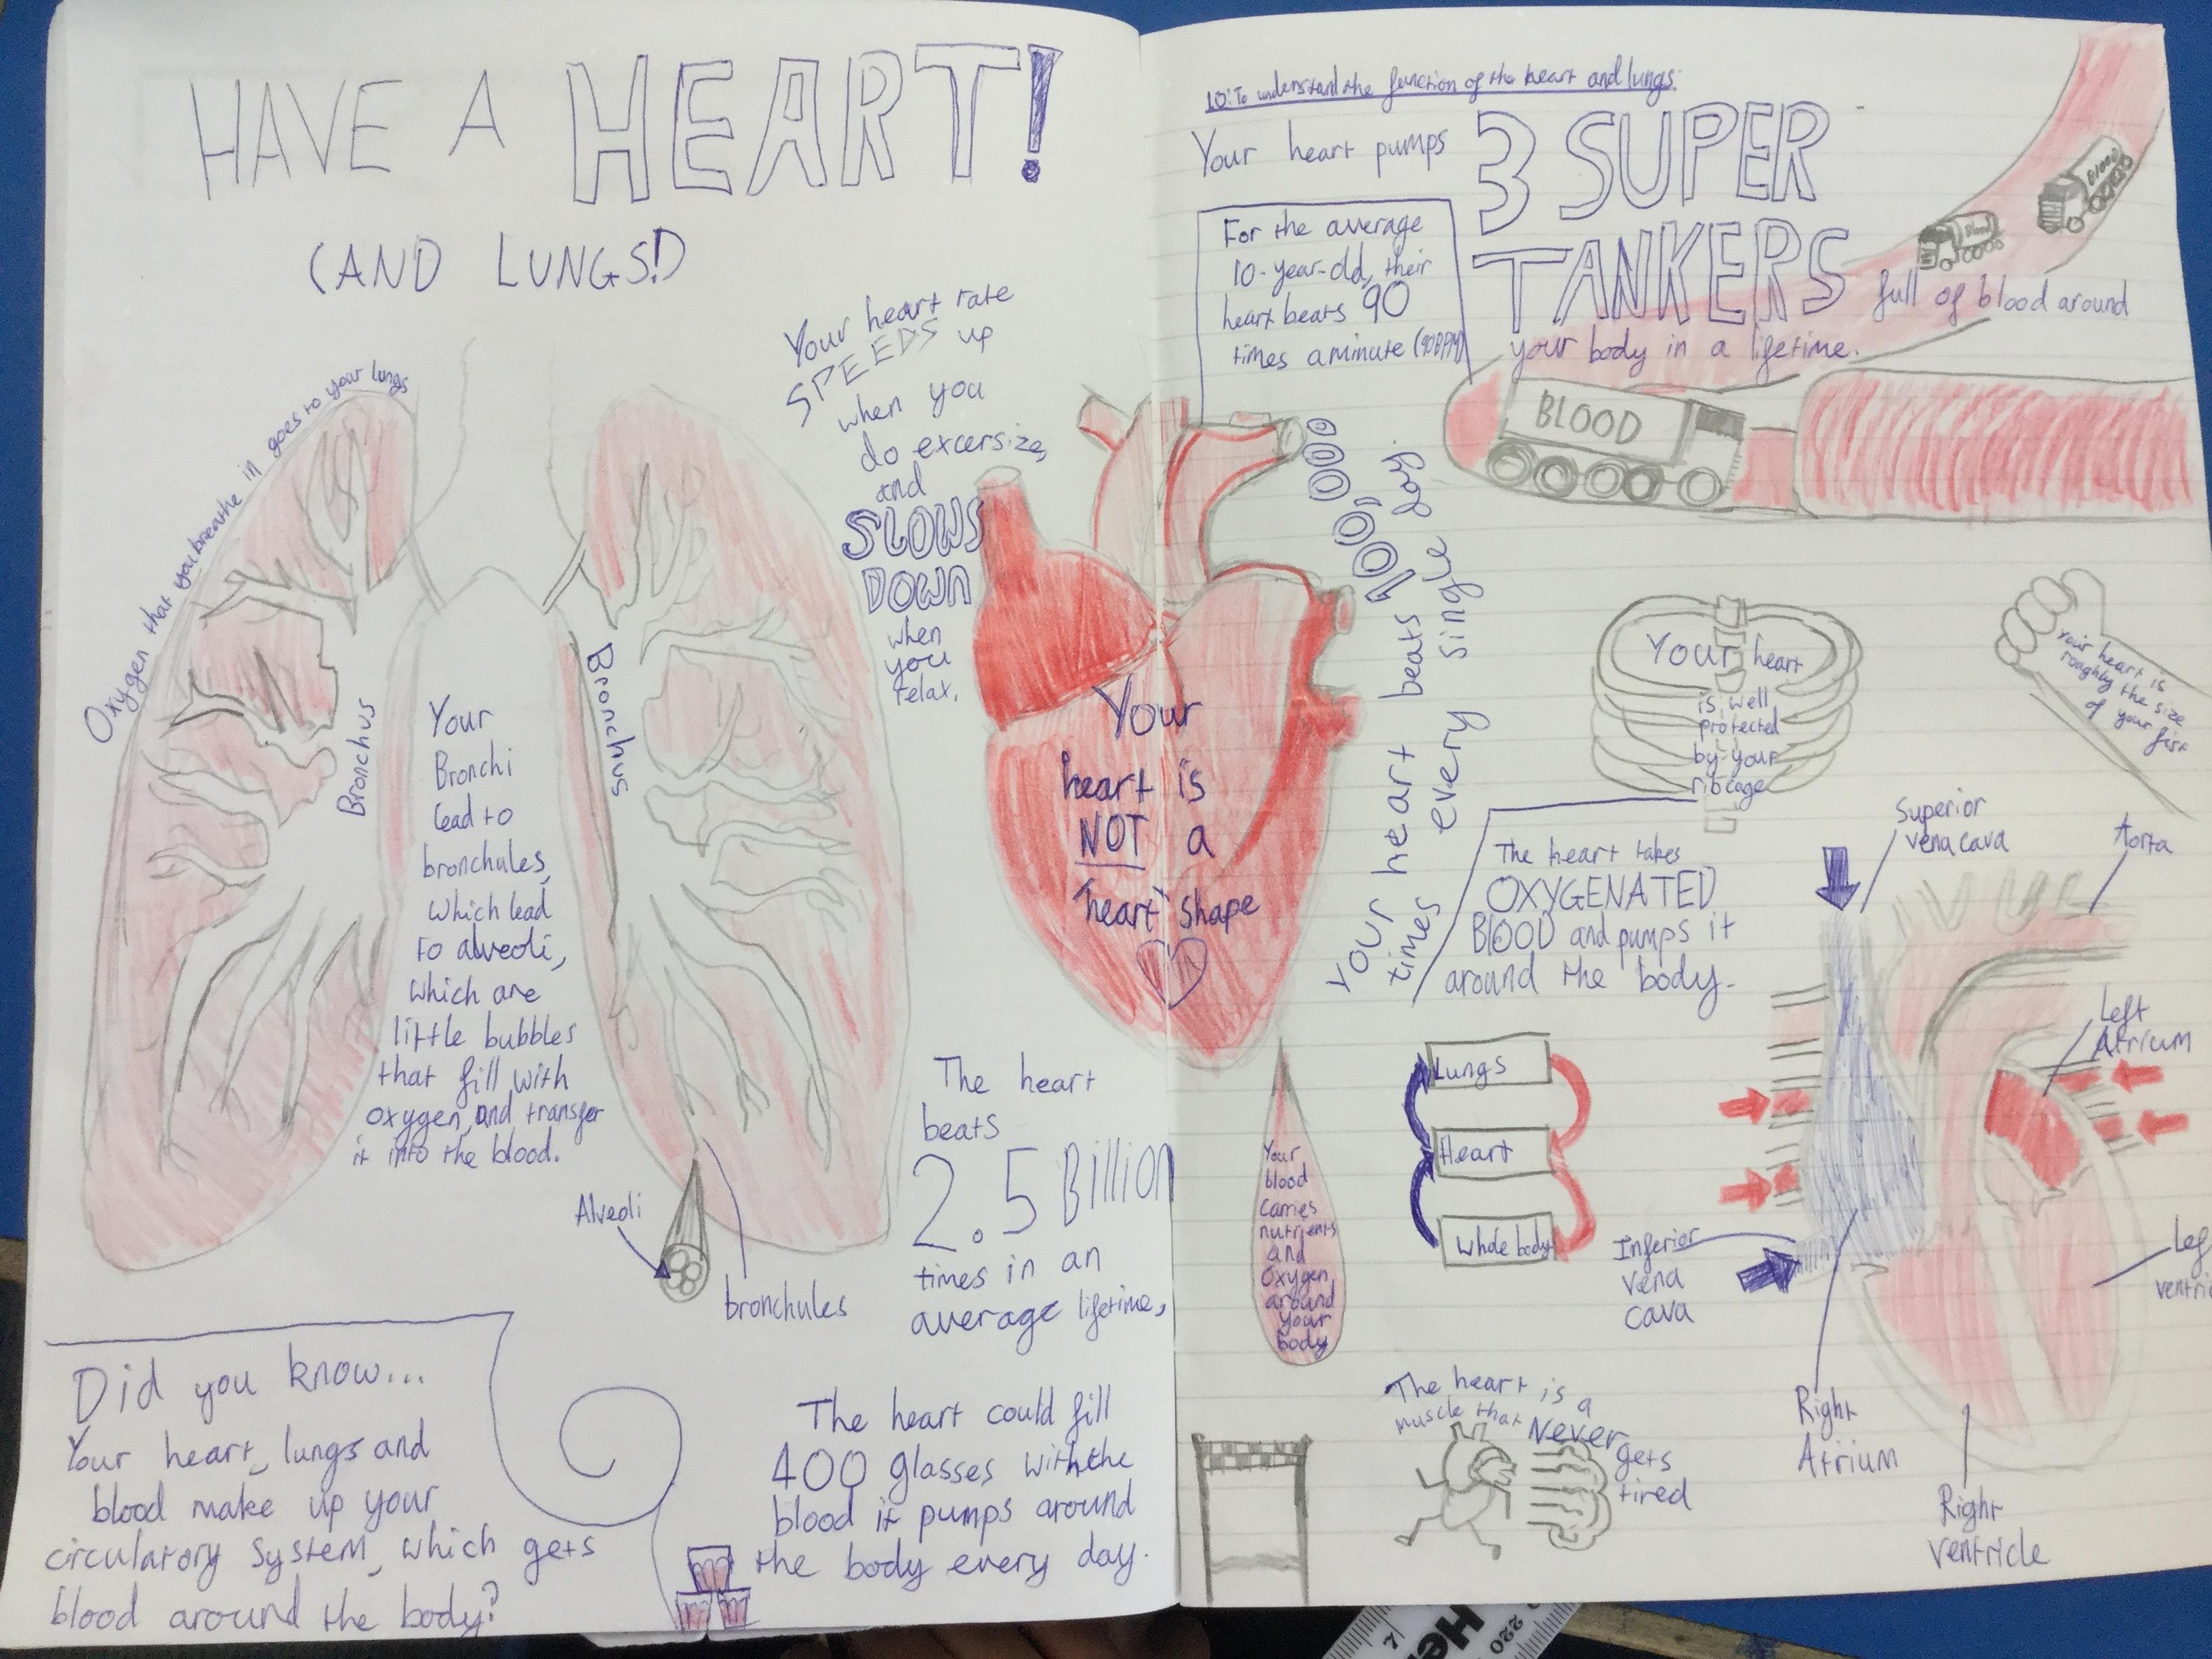 HAVE A HEART!
(AND LUNGS!)
Oxygen that you breathe in goes to your lungs
Your heart rate
SPEEDS up
when you
do excersize,
and
SLOWS
DOWN
when
you
relax.
Bronchus
Bronchus
Your
Bronchi
lead to
bronchules,
which lead
to alveoli,
which are
little bubbles
that fill with
oxygen, and transfer
it into the blood.
Alveoli
bronchules
Your
heart is
NOT a
"heart" shape
The heart
beats
2.5 Billion
times in an
average lifetime,
Did you know...
Your heart, lungs and
blood make up your
circulatory system, which gets
blood around the body?
The heart could fill
400 glasses with the
blood it pumps around
the body every day.
LO: To understand the function of the heart and lungs.
Your heart pumps
3 SUPER
TANKERS
full of blood around
your body in a lifetime.
Blood
Blood
BLOOD
For the average
10-year-old, their
heart beats 90
times a minute (90BPM)
Your heart beats 100,000
times every single day.
Your heart
is well
protected
by your
ribcage
Your heart is
roughly the size
of your fist
The heart takes
OXYGENATED
BLOOD and pumps it
around the body.
Lungs
Heart
Whole body
Your
blood
carries
nutrients
and
oxygen
around
your
body
Superior
vena cava
Aorta
Left
Atrium
Inferior
vena
cava
Lef
ventric
Right
Atrium
Right
ventricle
The heart is a
muscle that Never
gets
tired
He
220